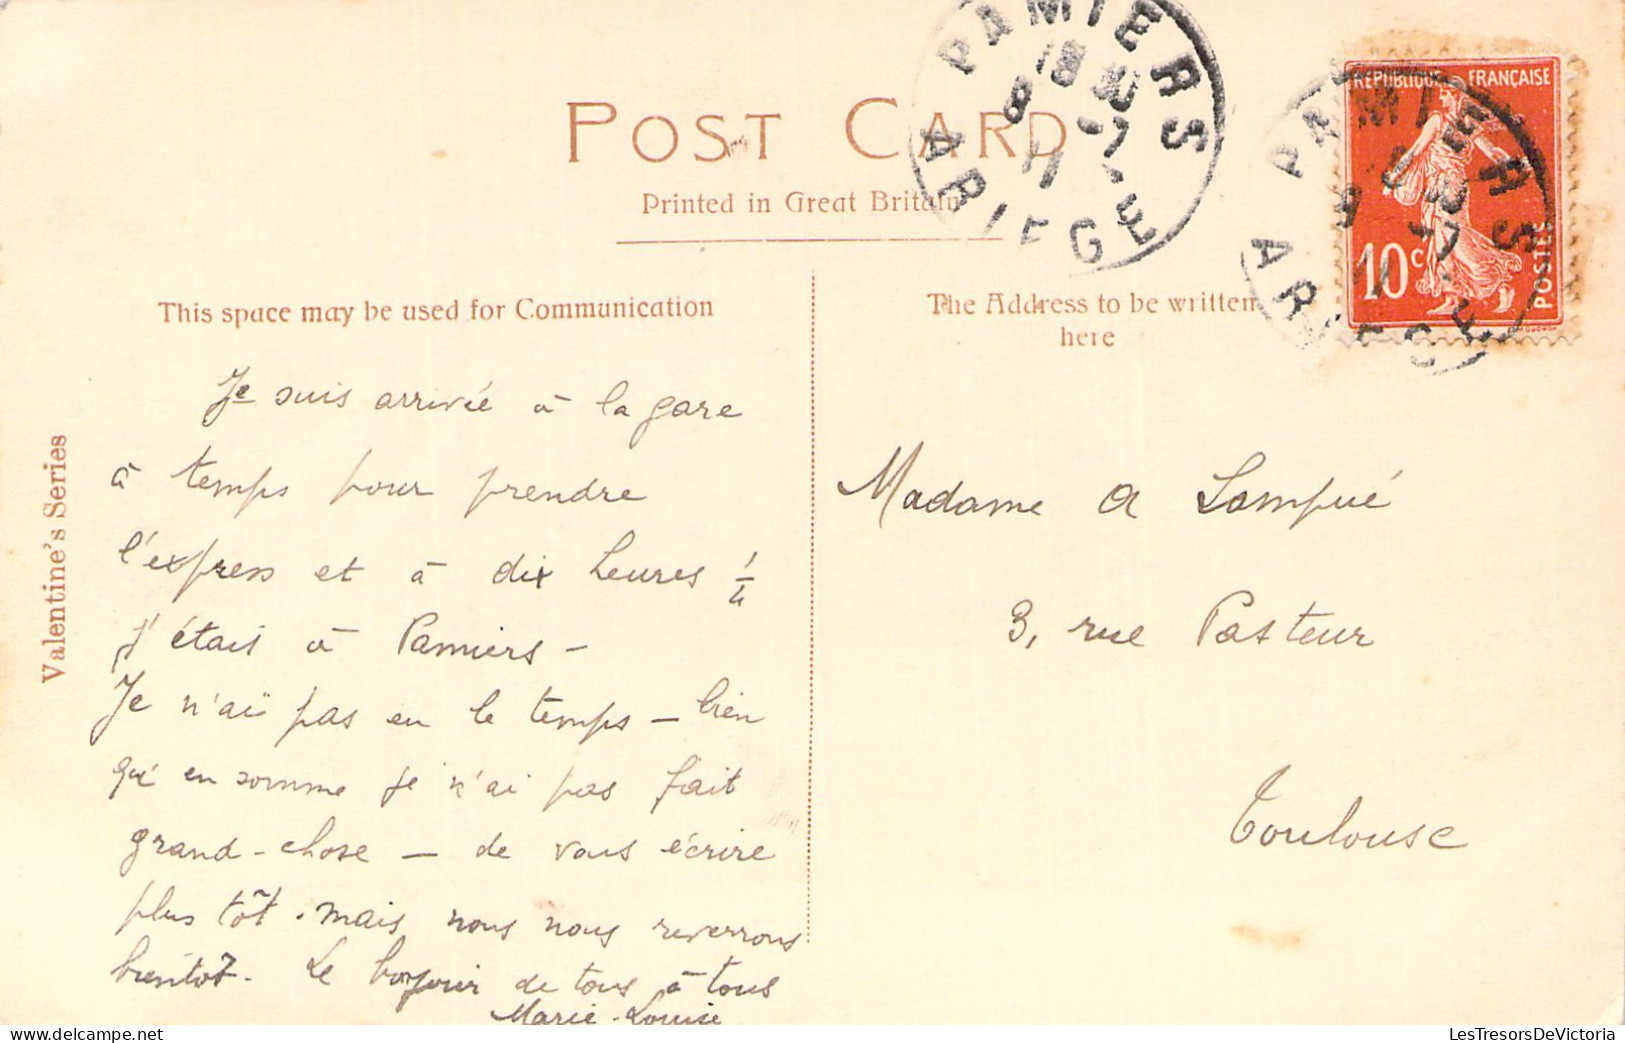 POST CARD
Printed in Great Britain
This space may be used for Communication
The Address to be written
here
Valentine's Series
PAMIERS
ARIEGE
RÉPUBLIQUE FRANÇAISE
10c
POSTES
PAMIERS
ARIEGE
Je suis arrivée à la gare
à temps pour prendre
l'express et à dix heures 1/4
j'étais à Pamiers -
Je n'ai pas eu le temps - bien
qu'en somme je n'ai pas fait
grand-chose - de vous écrire
plus tôt. mais nous nous reverrons
bientôt. Le bonjour de tous à tous
Marie-Louise
Madame A Lampué
3, rue Pasteur
Toulouse
LesTresorsDeVictoria